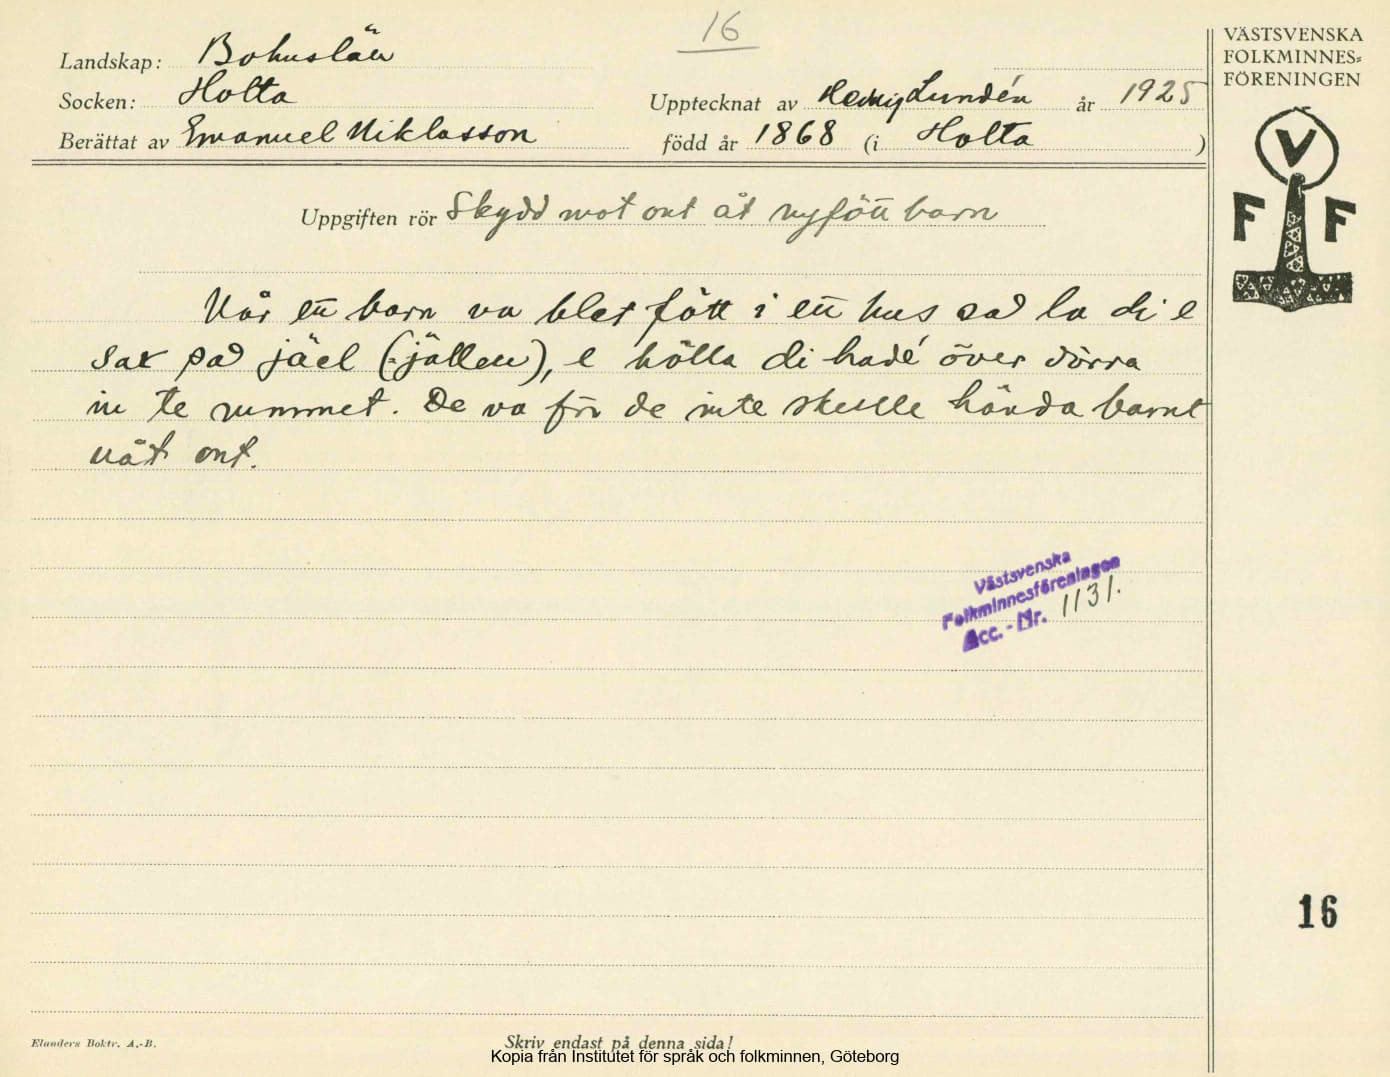 16
Landskap: Bohuslän
Socken: Holta
Upptecknat av Hedvig Lundén år 1925
Berättat av Emanuel Niklasson
född år 1868 (i Holta)
VÄSTSVENSKA
FOLKMINNES-
FÖRENINGEN
V
F F
Uppgiften rör Skydd mot ont åt nyfött barn
Når ett barn va blet fött i ett hus så la di e
sax på jäel (jällen), e hölla di hadé över dörra
in te rummet. De va för de inte skulle hända barnt
nåt ont.
Västsvenska
Folkminnesföreningen
Acc.-Nr. 1131.
16
Elanders Boktr. A.-B.
Skriv endast på denna sida!
Kopia från Institutet för språk och folkminnen, Göteborg